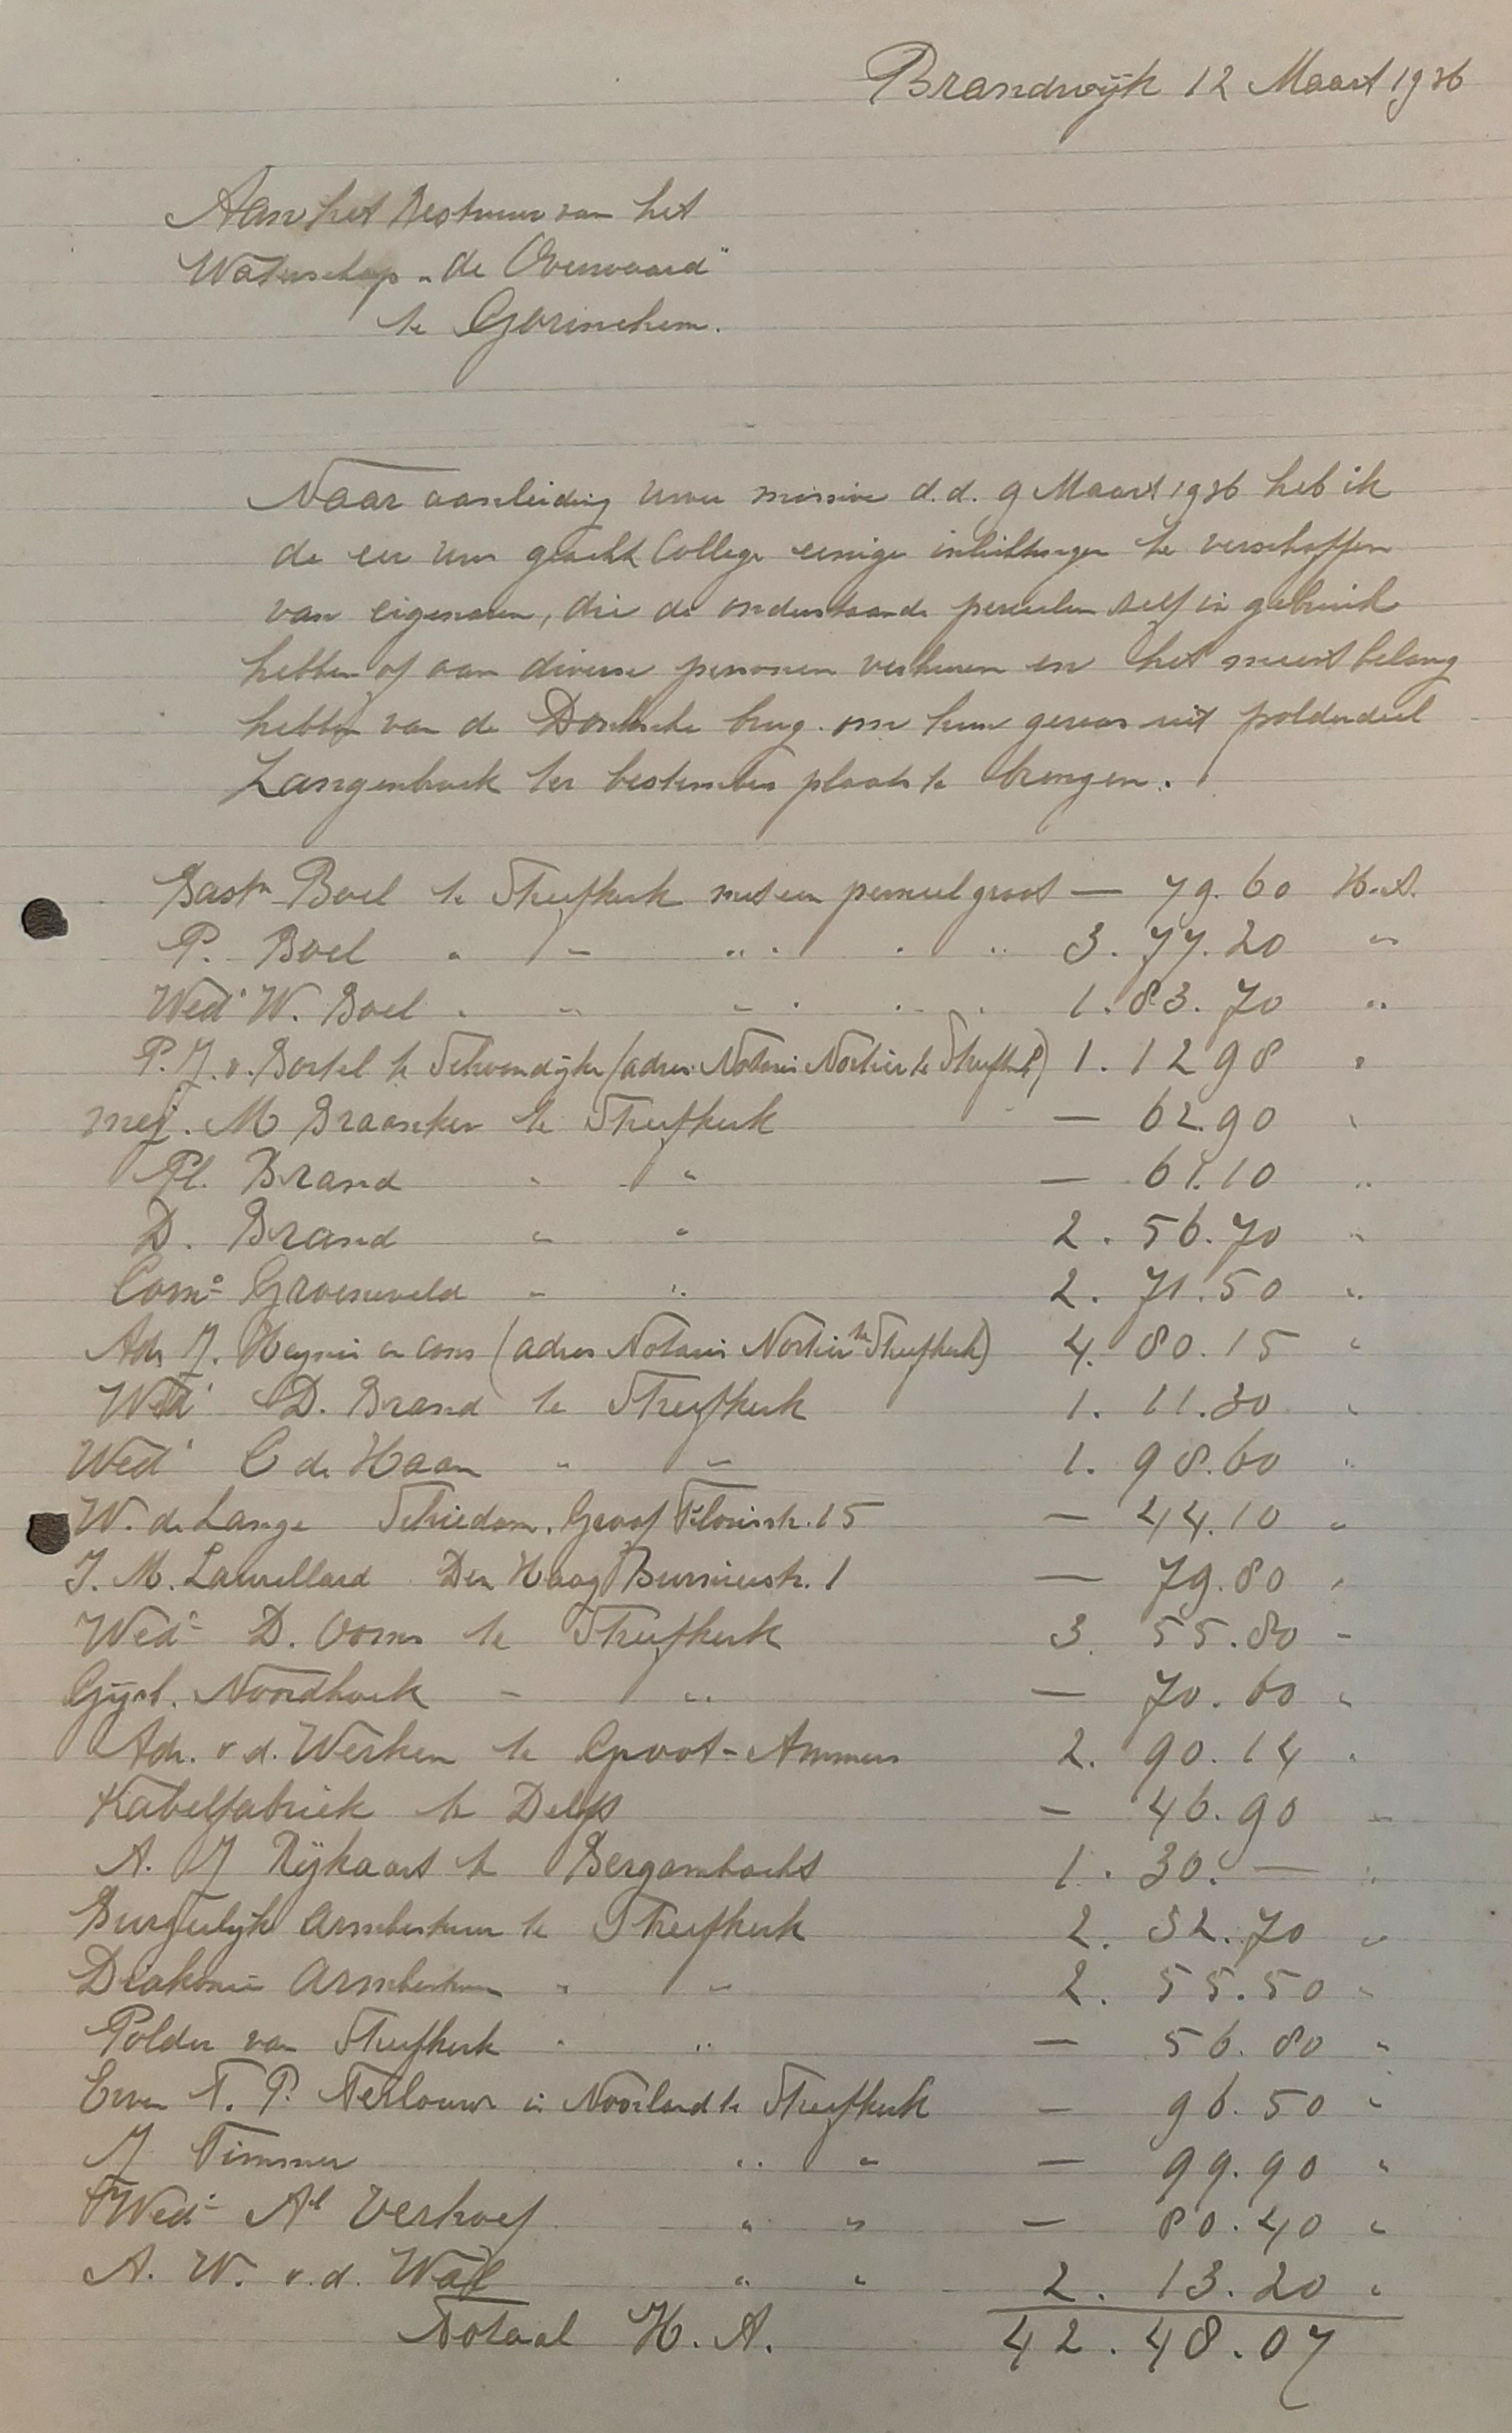 Brandwijk 12 Maart 1936
Aan het Bestuur van het
Waterschap „de Overwaard"
te Gorinchem.
Naar aanleiding uwer missive d.d. 9 Maart 1936 heb ik
de eer uw geacht College eenige inlichtingen te verschaffen
van eigenaren, die de onderstaande perceelen zelf in gebruik
hebben of aan diverse personen verhuren en het meest belang
hebben van de Donksche brug om hun gewas uit polderdeel
Langenbroek ter bestemder plaats te brengen.
Bastn Boel te Streefkerk met een perceel groot — 79.60 H.A.
P. Boel " " " " " " 3.77.20 "
Wed. W. Boel " " " " " " 1.83.70 "
P.J. v. Bortel te (adres Notaris Nortier te Streefk) 1.12 98 "
mej. M Braanker te Streefkerk — 62.90 "
Pl. Brand " " — 61.10 "
D. Brand " " 2.56.70 "
Corns Groeneveld " " 2.71.50 "
Adr J. en cons (adres Notaris Nortier te Streefkerk) 4.80.15 "
Wed. D. Brand te Streefkerk 1.11.30 "
Wed. C de Haan " " 1.98.60 "
W. de Lange Schiedam. Graaf Florisstr. 15 — 44.10 "
J. M. Laurillard Den Haag Burnierstr. 1 — 79.80 "
Wed. D. Ooms te Streefkerk 3 55.80 "
Gijsb. Noordhoek " " — 70.60 "
Adr. v.d. Werken te Groot-Ammers 2.90.14 "
Kabelfabriek te Delft — 46.90 "
A. J Rijkaart te Bergambacht 1.30.— "
Burgerlijk Armbestuur te Streefkerk 2.32.70 "
Diakonie Armbestuur " " 2.55.50 "
Polder van Streefkerk " " — 56.80 "
Erven T. P. Terlouw in Noorland te Streefkerk — 96.50 "
J Timmer " " — 99.90 "
Wed. Ad Verhoef " " — 80.40 "
A. W. v.d. Wal " " 2.13.20 "
Totaal H.A. 42.48.07